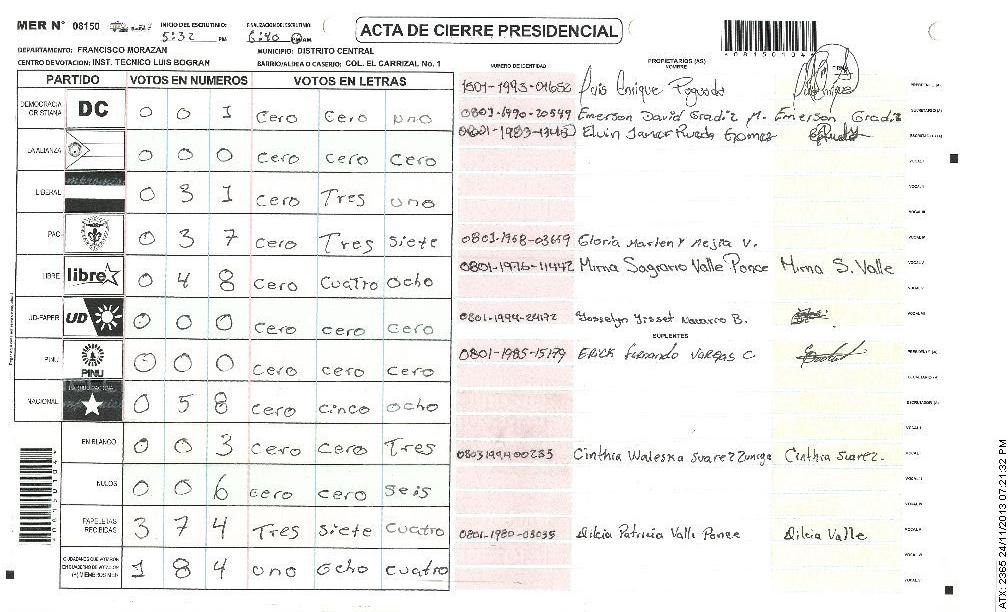 MER N° 08150 INICIO DEL ESCRUTINIO FINALIZACION DEL ESCRUTINIO
5:32 PM 6:40 PM AM
ACTA DE CIERRE PRESIDENCIAL
DEPARTAMENTO: FRANCISCO MORAZAN MUNICIPIO: DISTRITO CENTRAL
CENTRO DE VOTACION: INST. TECNICO LUIS BOGRAN BARRIO/ALDEA O CASERIO: COL. EL CARRIZAL No. 1
PARTIDO VOTOS EN NUMEROS VOTOS EN LETRAS
DEMOCRACIA CRISTIANA DC 0 0 1 Cero Cero uno
LA ALIANZA 0 0 0 Cero Cero Cero
LIBERAL 0 3 1 Cero Tres uno
PAC 0 3 7 Cero Tres Siete
LIBRE libre 0 4 8 Cero Cuatro Ocho
UD-FAPER UD 0 0 0 Cero Cero Cero
PINU PINU 0 0 0 Cero Cero Cero
NACIONAL 0 5 8 Cero Cinco Ocho
EN BLANCO 0 0 3 Cero Cero Tres
NULOS 0 0 6 Cero Cero Seis
PAPELETAS RECIBIDAS 3 7 4 Tres Siete Cuatro
CIUDADANOS QUE VOTARON EN CUADERNO DE VOTACION (+) MIEMBROS MER 1 8 4 uno Ocho Cuatro
NUMERO DE IDENTIDAD PROPIETARIOS (AS)
NOMBRE FIRMA
Luis Enrique PRESIDENTE (A)
0801-1990-20549 Emerson David Gradiz M. Emerson Gradiz SECRETARIO (A)
Elvin Janer Pineda Gomez
VOCAL I
VOCAL II
VOCAL III
0801-1968-03659 Gloria Marleny Mejia V. VOCAL IV
0801-1976-11442 Mirna Sagrario Valle Ponce Mirna S. Valle VOCAL V
0801-1994-24172 Josselyn Yisset Navarro B.
SUPLENTES
0801-1985-15179 Erick Fernando Vargas C. PRESIDENTE (A)
SECRETARIO (A)
ESCRUTADOR (A)
VOCAL I
0803199400285 Cinthia Waleska Suarez Zuniga Cinthia Suarez.
0801-1980-03035 Dilcia Patricia Valle Ponce Dilcia Valle
4081501044
ATX: 2365 24/11/2013 07:21:32 PM